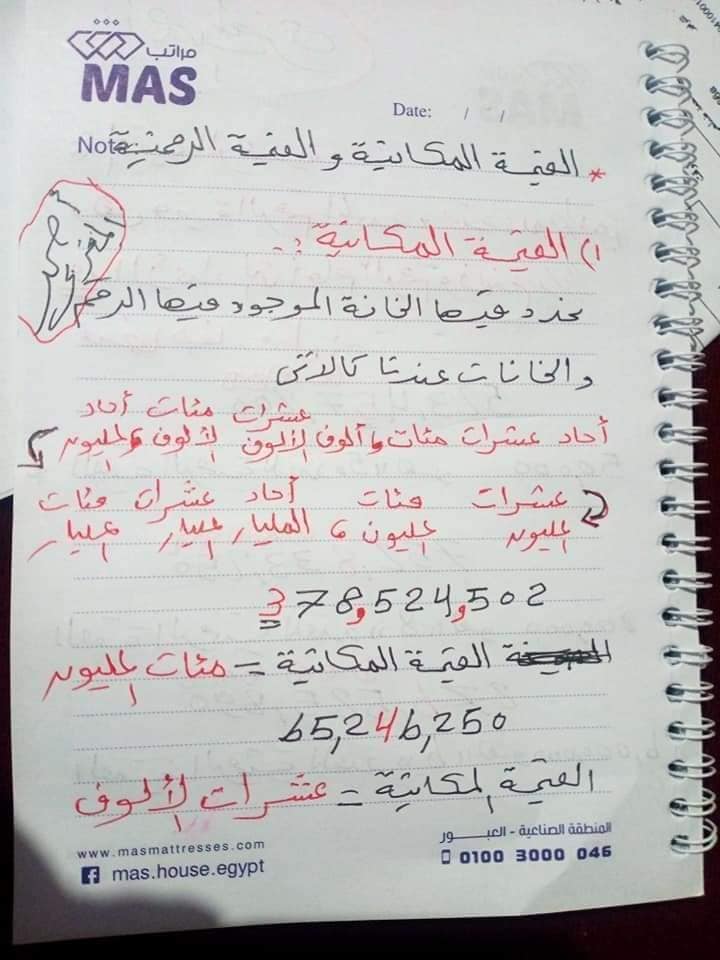 مراتب
MAS
Date: / /
Note
* القيمة المكانية و القيمة الرقمية
١) القيمة المكانية :-
نحدد فيها الخانة الموجود فيها الرقم
والخانات عندنا كالآتى
عشرات مئات أحاد
أحاد عشرات مئات، ألوف الألوف الألوف، المليون
عشرات مئات أحاد عشرات مئات
المليون المليون، المليار المليار المليار
378,524,502
القيمة المكانية = مئات المليون
65,246,250
القيمة المكانية = عشرات الألوف
www.masmattresses.com
المنطقة الصناعية - العبـــور
mas.house.egypt
0100 3000 046